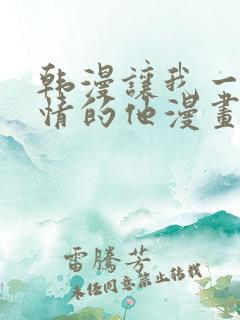 韩漫讓我一
情的他漫畫
雷騰芳
未经同意禁止转载